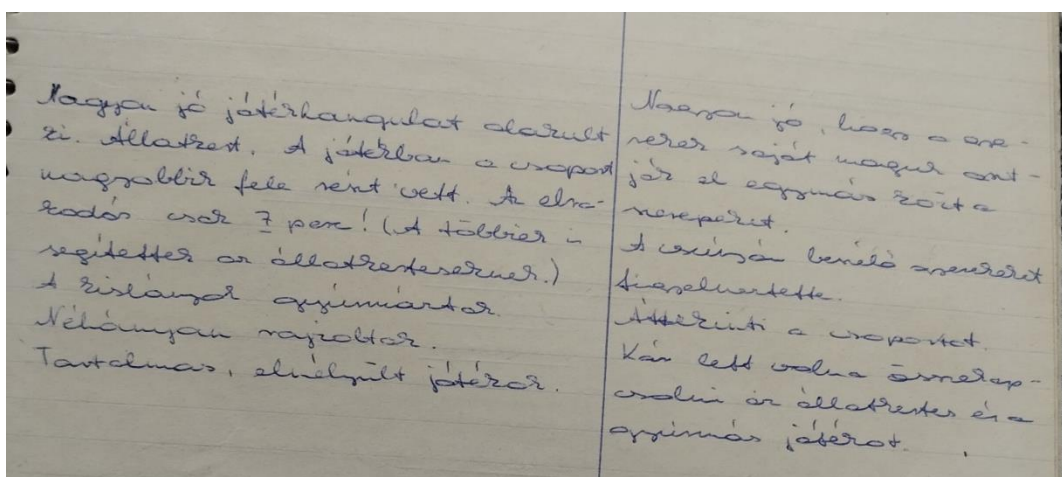 Nagyon jó játékhangulat alakult
ki. Állatkert. A játékban a csoport
nagyobbik fele részt vett. Az elra-
kodás csak 7 perc! (A többiek is
segítettek az állatkerteseknek.)
A kislányok gyúrmáztak.
Néhányan rajzoltak.
Tartalmas, elmélyült játékok.
Nagyon jó, hogy a gye-
rekek saját maguk oszt-
ják el egymás közt a
szerepeket.
A csúnyán beszélő gyereket
figyelmeztette.
Áttekinti a csoportot.
Kár lett volna összekap-
csolni az állatkertes és a
gyúrmás játékot.